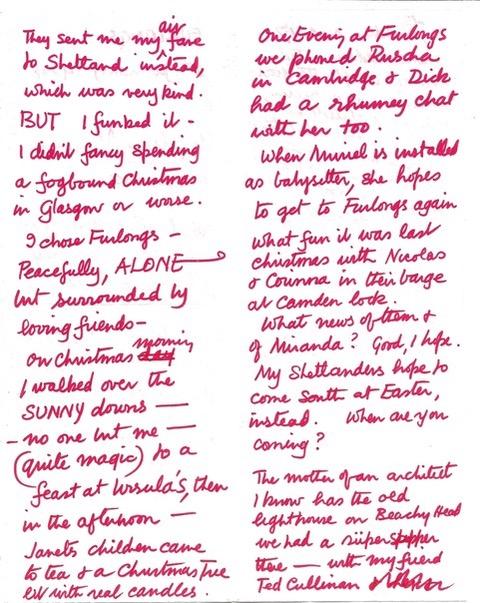 They sent me my air fare
to Shetland instead,
which was very kind.
BUT I funked it -
I didn't fancy spending
a fogbound Christmas
in Glasgow or worse.
I chose Furlongs -
Peacefully, ALONE
but surrounded by
loving friends -
on Christmas morning
I walked over the
SUNNY downs —
- no one but me —
(quite magic) to a
feast at Ursula's, then
in the afternoon —
Janets children came
to tea & a Christmas Tree
lit with real candles.
One Evening at Furlongs
we phoned Ruscha
in Cambridge & Dick
had a rhumey chat
with her too.
When Muriel is installed
as babysitter, she hopes
to get to Furlongs again
what fun it was last
christmas with Nicolas
& Corinna in their barge
at Camden lock.
What news of them &
of Miranda? Good, I hope.
My Shetlanders hope to
come South at Easter,
instead. When are you
coming?
The mother of an architect
I know has the old
lighthouse on Beachy Head
we had a süper
there — with my friend
Ted Cullinan &